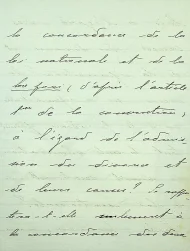 la concordance de la
loi nationale et de la
lex fori, d'après l'article
1er de la convention,
à l'égard de l'admis-
sion du divorce et
de leurs causes? Le suffi-
t-elle seulement à
la concordance des deux